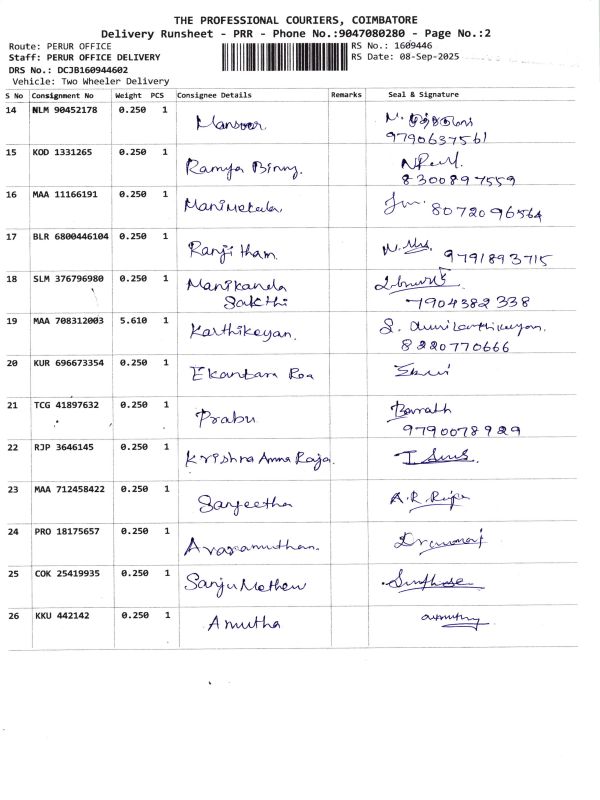 THE PROFESSIONAL COURIERS, COIMBATORE
Delivery Runsheet - PRR - Phone No.:9047080280 - Page No.:2
Route: PERUR OFFICE RS No.: 1609446
Staff: PERUR OFFICE DELIVERY RS Date: 08-Sep-2025
DRS No.: DCJB160944602
Vehicle: Two Wheeler Delivery
S No Consignment No Weight PCS Consignee Details Remarks Seal & Signature
14 NLM 90452178 0.250 1 Mansoor
9790637561
15 KOD 1331265 0.250 1 Ramya Binny.
8300897559
16 MAA 11166191 0.250 1 Manimekala 8072096564
17 BLR 6800446104 0.250 1 Ranjitham. 9791893715
18 SLM 376796980 0.250 1 Manikanda
Sakthi 7904382338
19 MAA 708312003 5.610 1 Karthikeyan.
8220770666
20 KUR 696673354 0.250 1 Ekantara Roa
21 TCG 41897632 0.250 1 Prabu Barrath
9790078929
22 RJP 3646145 0.250 1 Krishna Amma Raja
23 MAA 712458422 0.250 1 Sanjeetha A.R.
24 PRO 18175657 0.250 1 Aravamuthan.
25 COK 25419935 0.250 1 Sanju Mathew
26 KKU 442142 0.250 1 Amutha